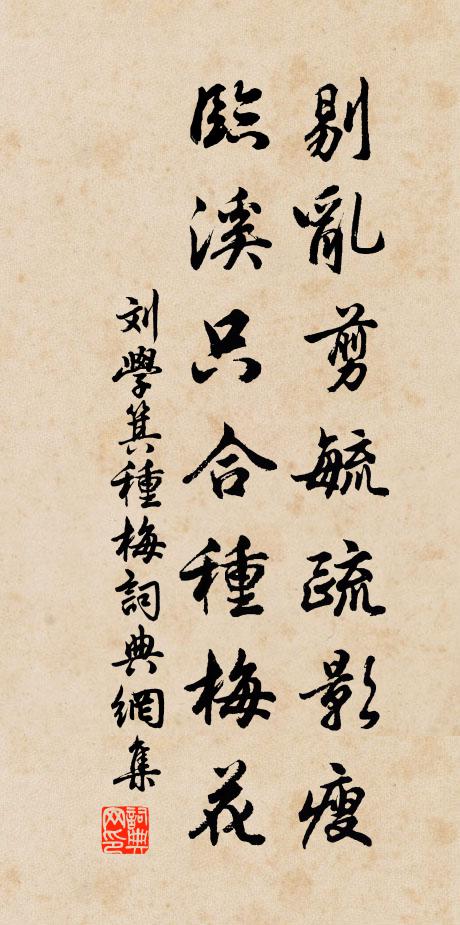 剔亂剪毓疏影瘦
臨溪只合種梅花
刘學箕種梅詞典網集
詞典網印